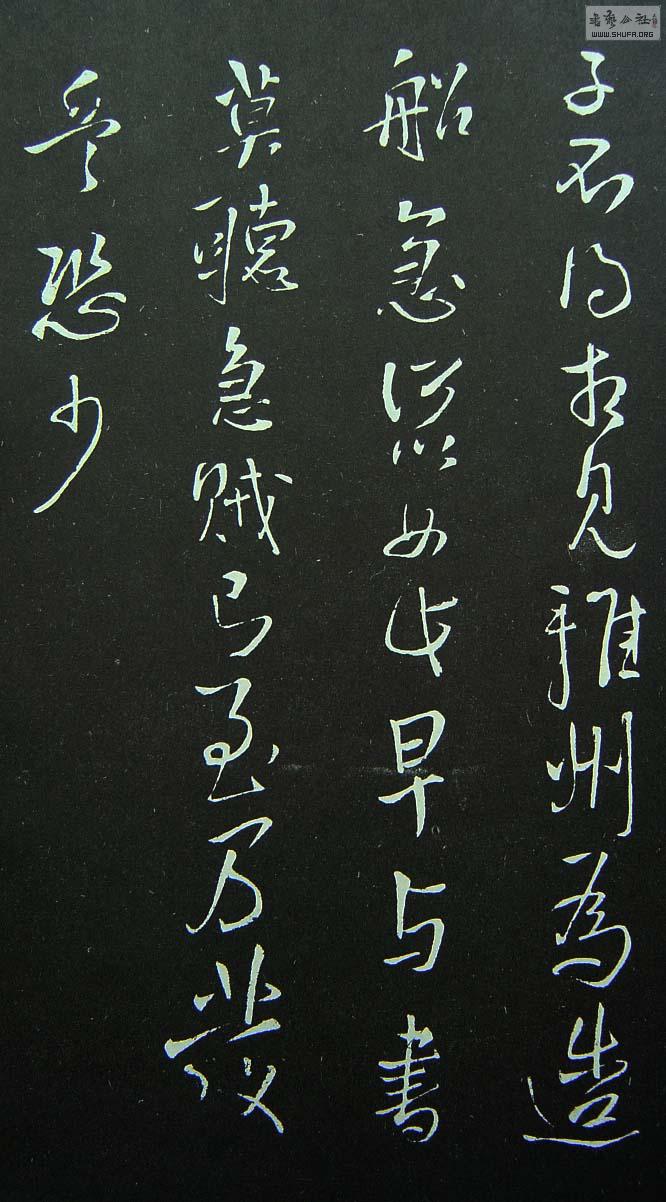 子不得相見雅州為造
船急以女代早与書
莫聽急賊已至乃發
兵恐少
書藝公社
WWW.SHUFA.ORG